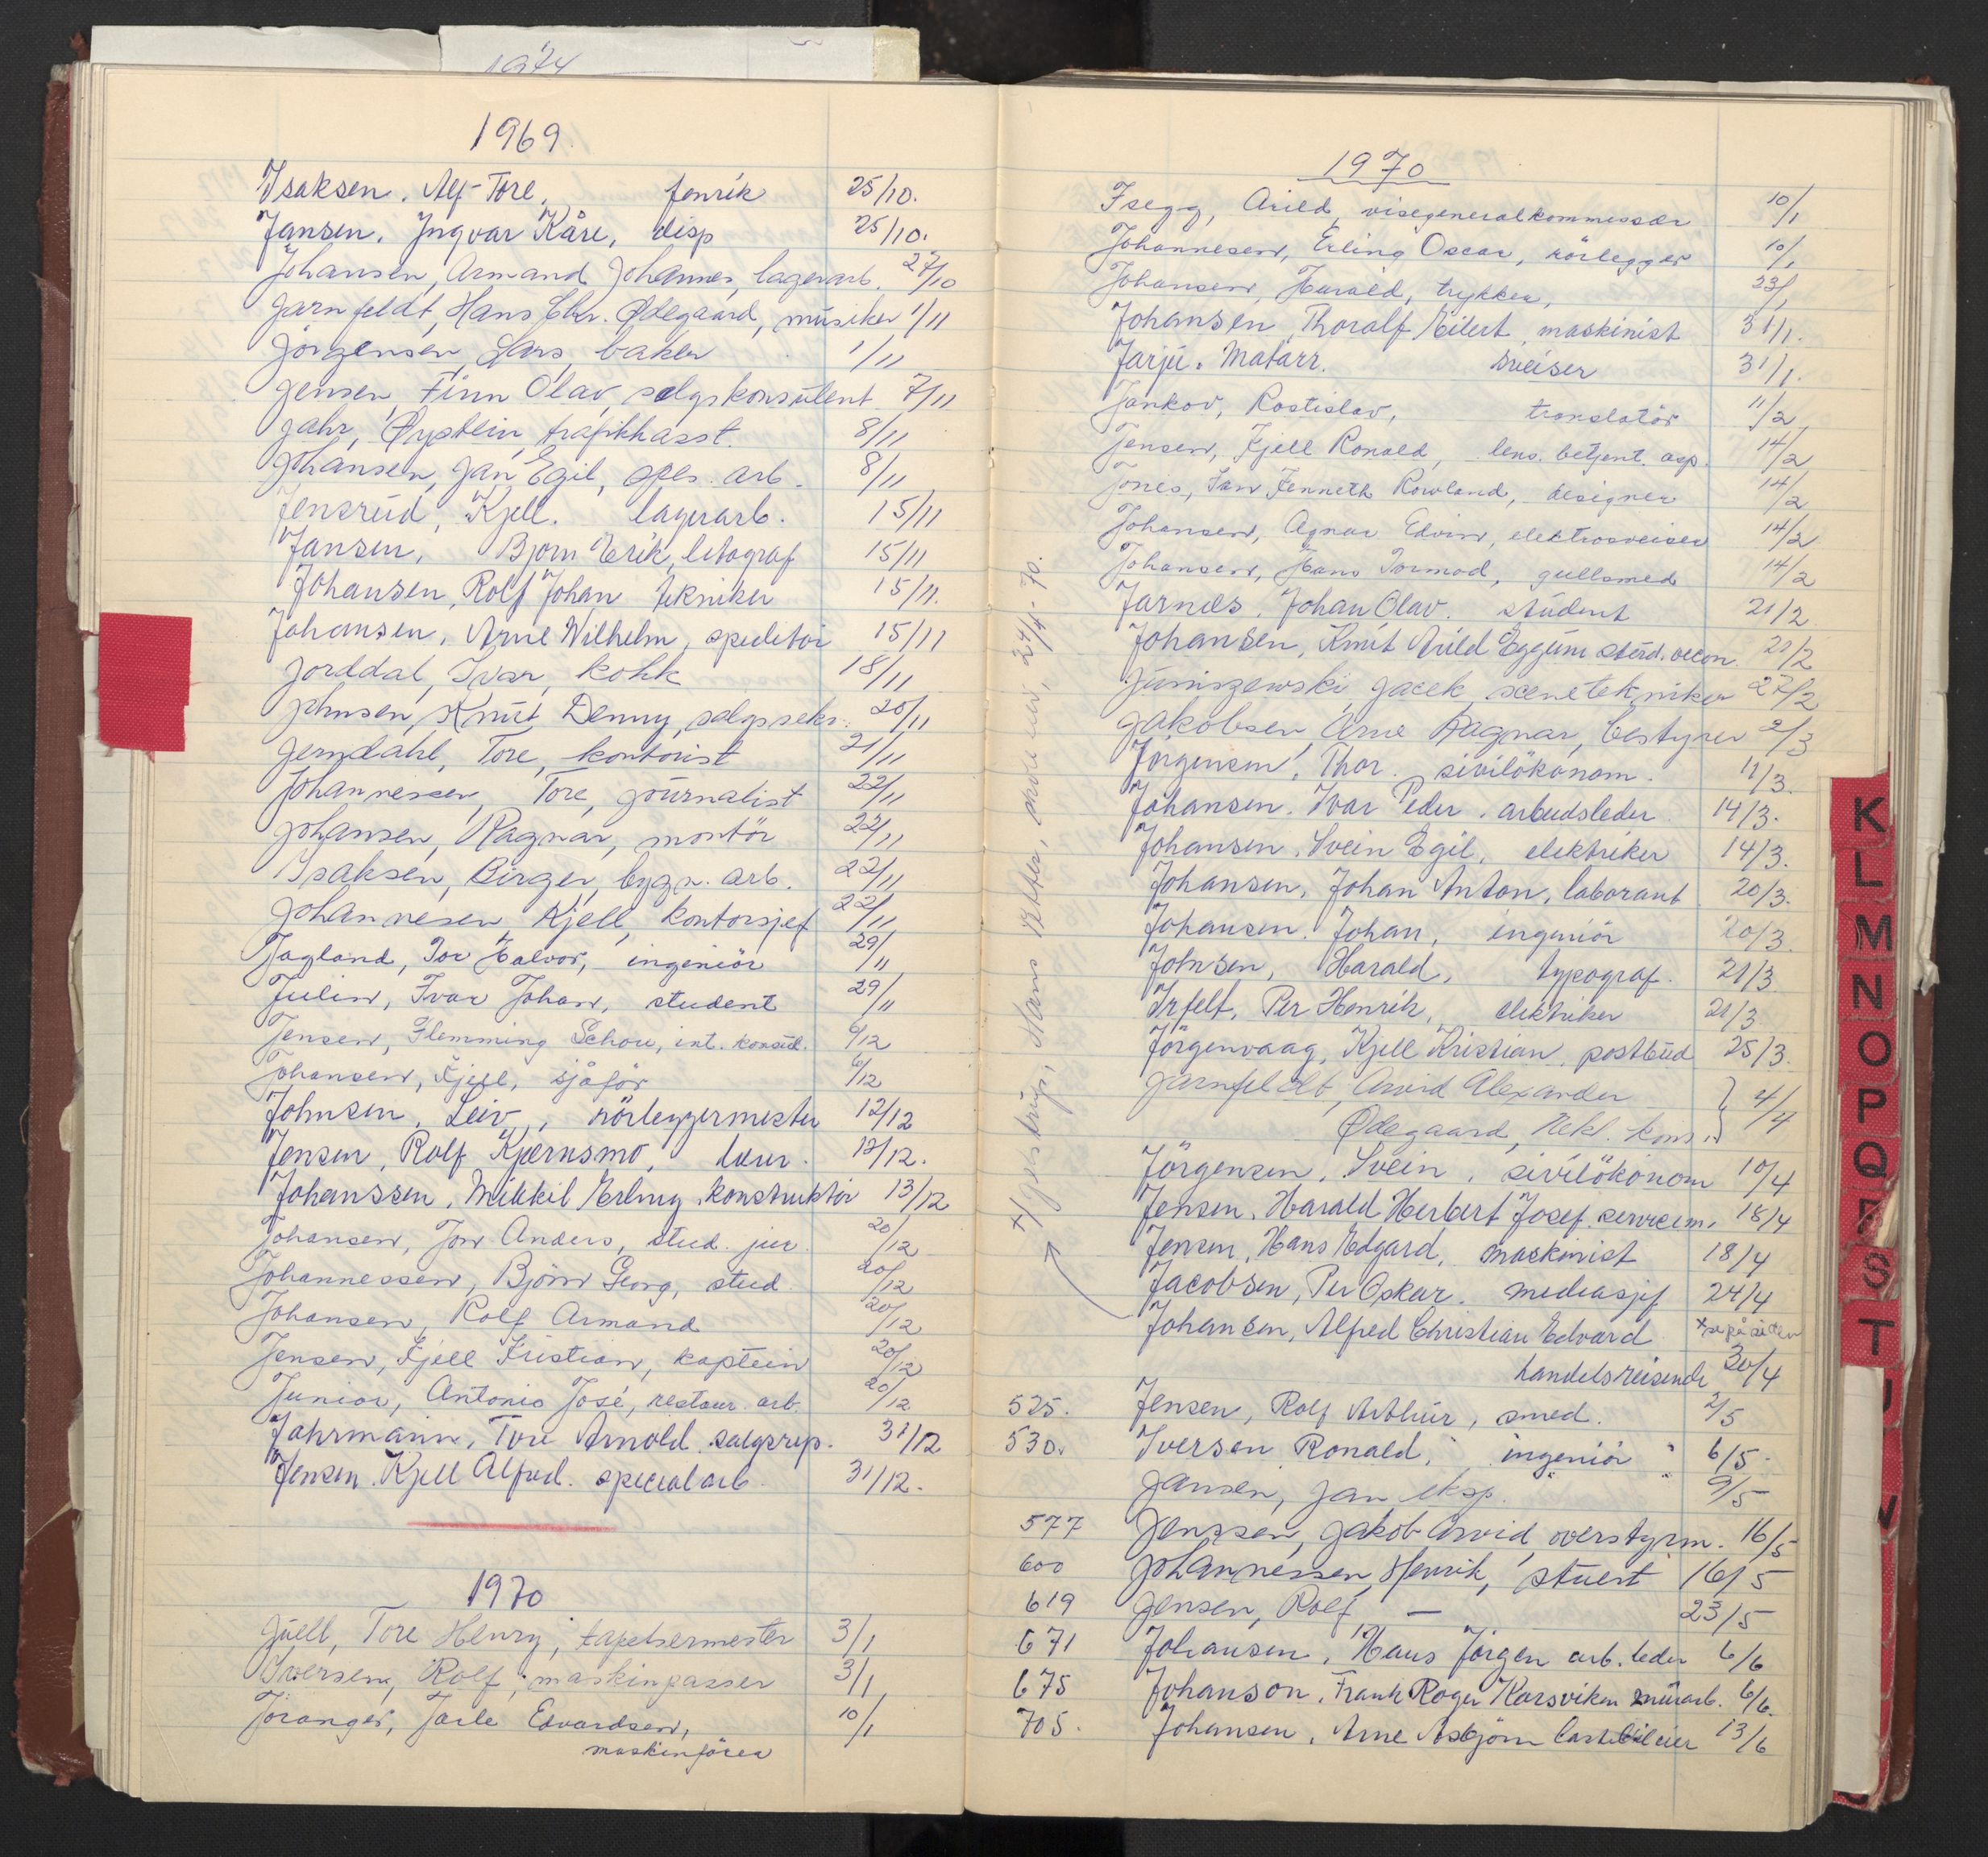 1974
1969
Isaksen, Alf-Tore, fenrik 25/10.
Jansen, Ingvar Kåre, disp 25/10.
Johansen, Armand Johannes, lagerarb. 27/10
Jarnfeldt, Hans Chr. Ødegaard, musiker 1/11
Jörgensen, Lars, baker 1/11
Jensen, Finn Olav, salgskonsulent 7/11
Jahr, Øystein, trafikkasst. 8/11
Johansen, Jan Egil, spes. arb. 8/11
Jensrud, Kjell. lagerarb. 15/11
Jansen, Bjørn Erik, litograf 15/11
Johansen, Rolf Johan tekniker 15/11.
Johansen, Arne Wilhelm, speditör 15/11
Jorddal, Ivar, kokk 18/11
Johnsen, Knut Denny, salgssekr. 20/11
Jerndahl, Tore, kontorist 21/11
Johannessen, Tore, journalist 22/11
Johansen, Ragnar, montör 22/11
Isaksen, Birger, bygn. arb. 22/11
Johannesen, Kjell, kontorsjef 22/11
Jagland, Tor Halvor, ingeniör 29/11
Julin, Ivar Johan, student 29/11
Jensen, Flemming Schou, int. konsul. 6/12
Johansen, Kjell, sjåför 6/12
Johnsen, Leiv, rörleggermester 12/12
Jensen, Rolf Kjernsmo, lærer. 12/12.
Johanssen, Mikkil Erling, konstruktör 13/12
Johansen, Jon Anders, stud. jur. 20/12
Johannessen, Björn Georg, stud. 20/12
Johansen, Rolf Armand 20/12
Jensen, Kjell Kristian, kaptein 20/12
Junior, Antonio José, restaur. arb. 20/12
Jahrmann, Tore Arnold salgsrep. 31/12
Jensen Kjell Alfred. specialarb. 31/12.
1970
Juell, Tore Henry, tapetsermester 3/1
Iversen, Rolf, maskinpasser 3/1
Joranger, Jarle Edvardsen, 10/1
maskinförer
1970
Isegg, Arild, visegeneralkommissær 10/1
Johannesen, Erling Oscar, rörlegger 10/1
Johansen, Harald, trykker, 23/1
Johansen, Thoralf Eilert, maskinist 31/1.
Jarju. Matarr. sveiser 31/1.
Jankov, Rostislav, translatör 11/2
Jensen, Kjell Ronald, lens. betjent. asp. 14/2
Jones, Ian Kenneth Rowland, designer 14/2
Johansen, Agnar Edvin, elektrosveiser 14/2
Johansen, Hans Tormod, gullsmed 14/2
Jarnæs, Johan Olav. student 21/2
Johansen, Knut Arild Eggum stud. oecon. 21/2
Juniszewski, Jacek, scenetekniker 27/2
Jakobsen, Arne Ragnar, bestyrer 2/3
Jörgensen, Thor. sivilökonom. 11/3.
Johansen. Ivar Peder. arbeidsleder. 14/3.
Johansen, Svein Egil, elektriker 14/3.
Johansen, Johan Anton, laborant 20/3.
Johansen. Johan, ingeniör 20/3.
Johnsen, Harald, typograf. 21/3.
Irfelt, Per Henrik, elektriker 21/3
Jörgenvaag, Kjell Kristian, postbud 25/3.
Jarnfeldt, Arvid Alexander } 4/4
Ødegaard, rekl. kons.
Jörgensen, Svein, sivilökonom 10/4
Jensen, Harald Herbert Josef. servicem. 18/4
Jensen, Hans Edgard, maskinist 18/4
Jacobsen, Per Oskar. mediasjef 24/4
Johansen, Alfred Christian Edvard x se på siden
handelsreisende 30/4
+/ Jelstrup, Hans Petter, 24/4-70.
525. Jensen, Rolf Arthur, smed. 2/5
530. Iversen Ronald, ingeniör 6/5.
Jansen, Jan eksp. " " 9/5
577 Jenssen, Jakob Arvid, overstyrm. 16/5
600 Johannessen, Henrik, stuert 16/5
619 Jensen, Rolf, — 23/5
671 Johansen, Hans Jörgen arb. leder 6/6
675 Johanson, Frank Roger Korsviken murarb. 6/6.
705. Johansen, Arne Asbjörn lastebileier 13/6
K
L
M
N
O
P
Q
R
S
T
U
V